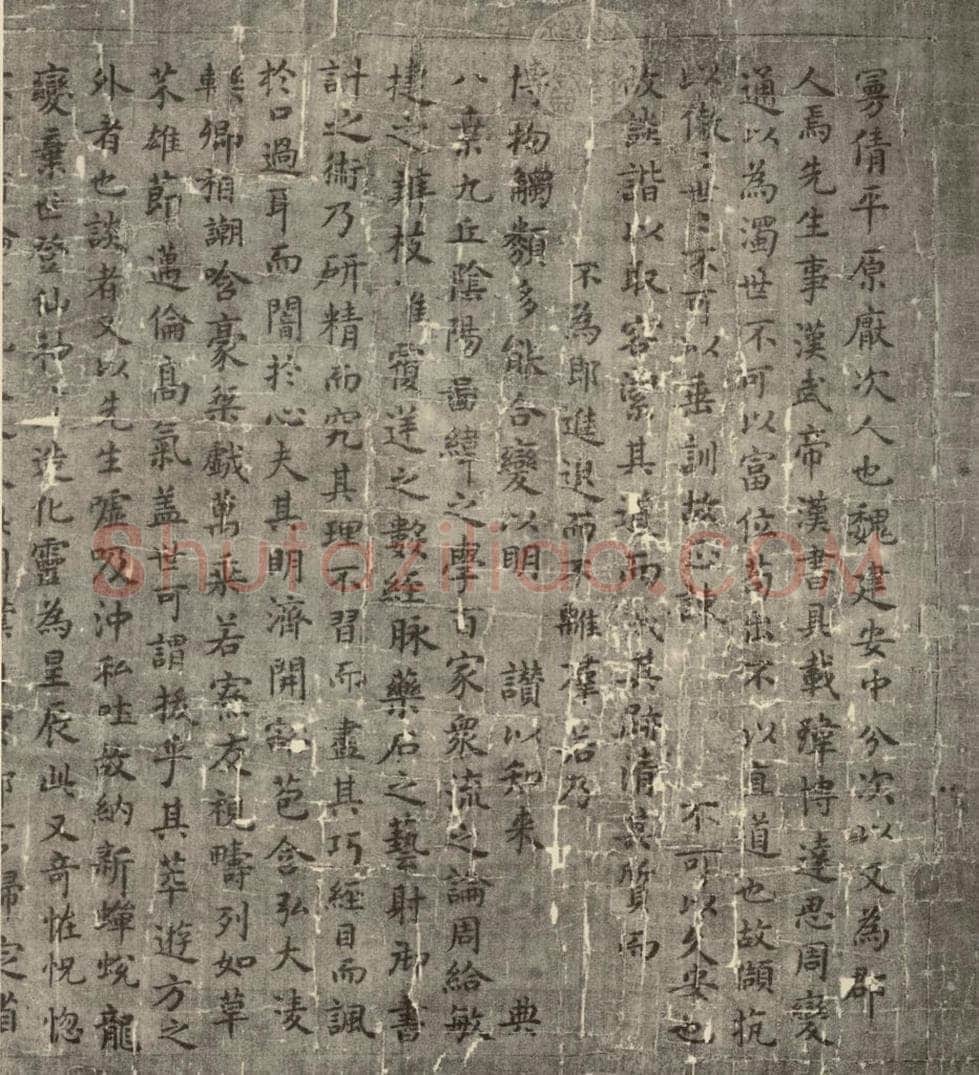 曼倩平原厭次人也魏建安中分次以又為郡
人焉先生事漢武帝漢書具載瑋博達思周變
通以為濁世不可以富位苟出不以直道也故頡抗
以傲〻世〻不可以垂訓故正諫不可以久安也
故談諧以取容潔其道而其跡清其質而
不為邪進退而不離群若乃
博物觸類多能合變以明讚以知来典
八索九丘陰陽啚緯之學百家衆流之論周給敏
捷之辯枝覆逆之數經脉藥石之藝射御書
計之術乃研精而究其理不習而盡其巧經目而諷
於口過耳而闇於心夫其明濟開豁苞含弘大淩
轢卿相謿哈豪桀戲萬乘若寮友視疇列如草
芥雄節邁倫髙氣盖世可謂拔乎其萃遊方之
外者也談者又以先生噓吸沖和吐故納新蟬蛻龍
變棄世登仙神造化靈為星辰此又奇恠怳惚
Shufaziliao.COM